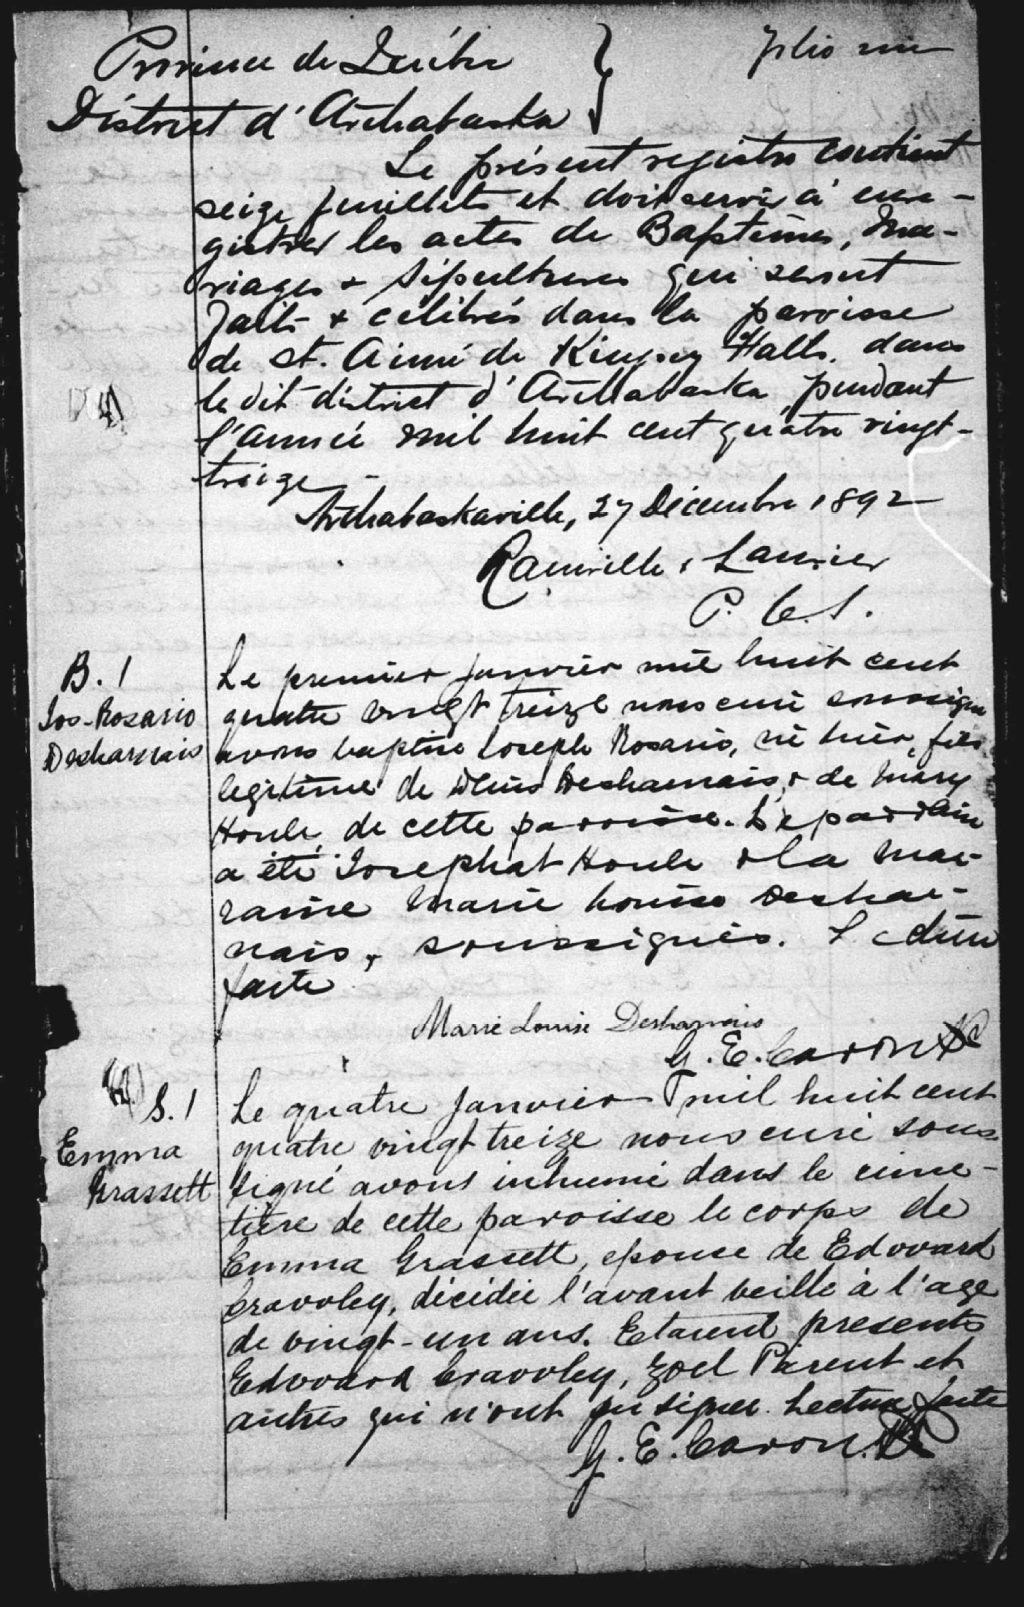 Province de Québec
folio un
District d'Arthabaska
Le présent registre contient
seize feuillets et doit servir à enre-
gistrer les actes de Baptêmes, Ma-
riages & Sépultures qui seront
faits & célébrés dans la paroisse
de St. Aimé de Kingsey Falls. dans
le dit district d'Arthabaska pendant
l'année mil huit cent quatre vingt-
treize
Arthabaskaville, 27 Décembre 1892
Rainville & Laurier
P. C. S.
B. 1
Jos-Rosario
Desharnais
Le premier Janvier mil huit cent
quatre vingt treize nous curé soussigné
avons baptisé Joseph Rosario, né hier, fils
legitime de Désharnais & de Mary
Houle, de cette paroisse. Le parrain
a été Josephat Houle & la mar-
raine Marie Louise Deshar-
nais, soussignés. Lecture
faite
Marie Louise Desharnais
G. E. Caron Ptr
S. 1
Emma
Grassett
Le quatre Janvier mil huit cent
quatre vingt treize nous curé sous-
signé avons inhumé dans le cime-
tière de cette paroisse le corps de
Emma Grassett, epouse de Edouard
Cravoley, décédée l'avant veille à l'age
de vingt-un ans. Etaient presents
Edouard Cravoley, Zoel Parent et
autres qui n'ont pu signer. Lecture faite
G. E. Caron. Ptr